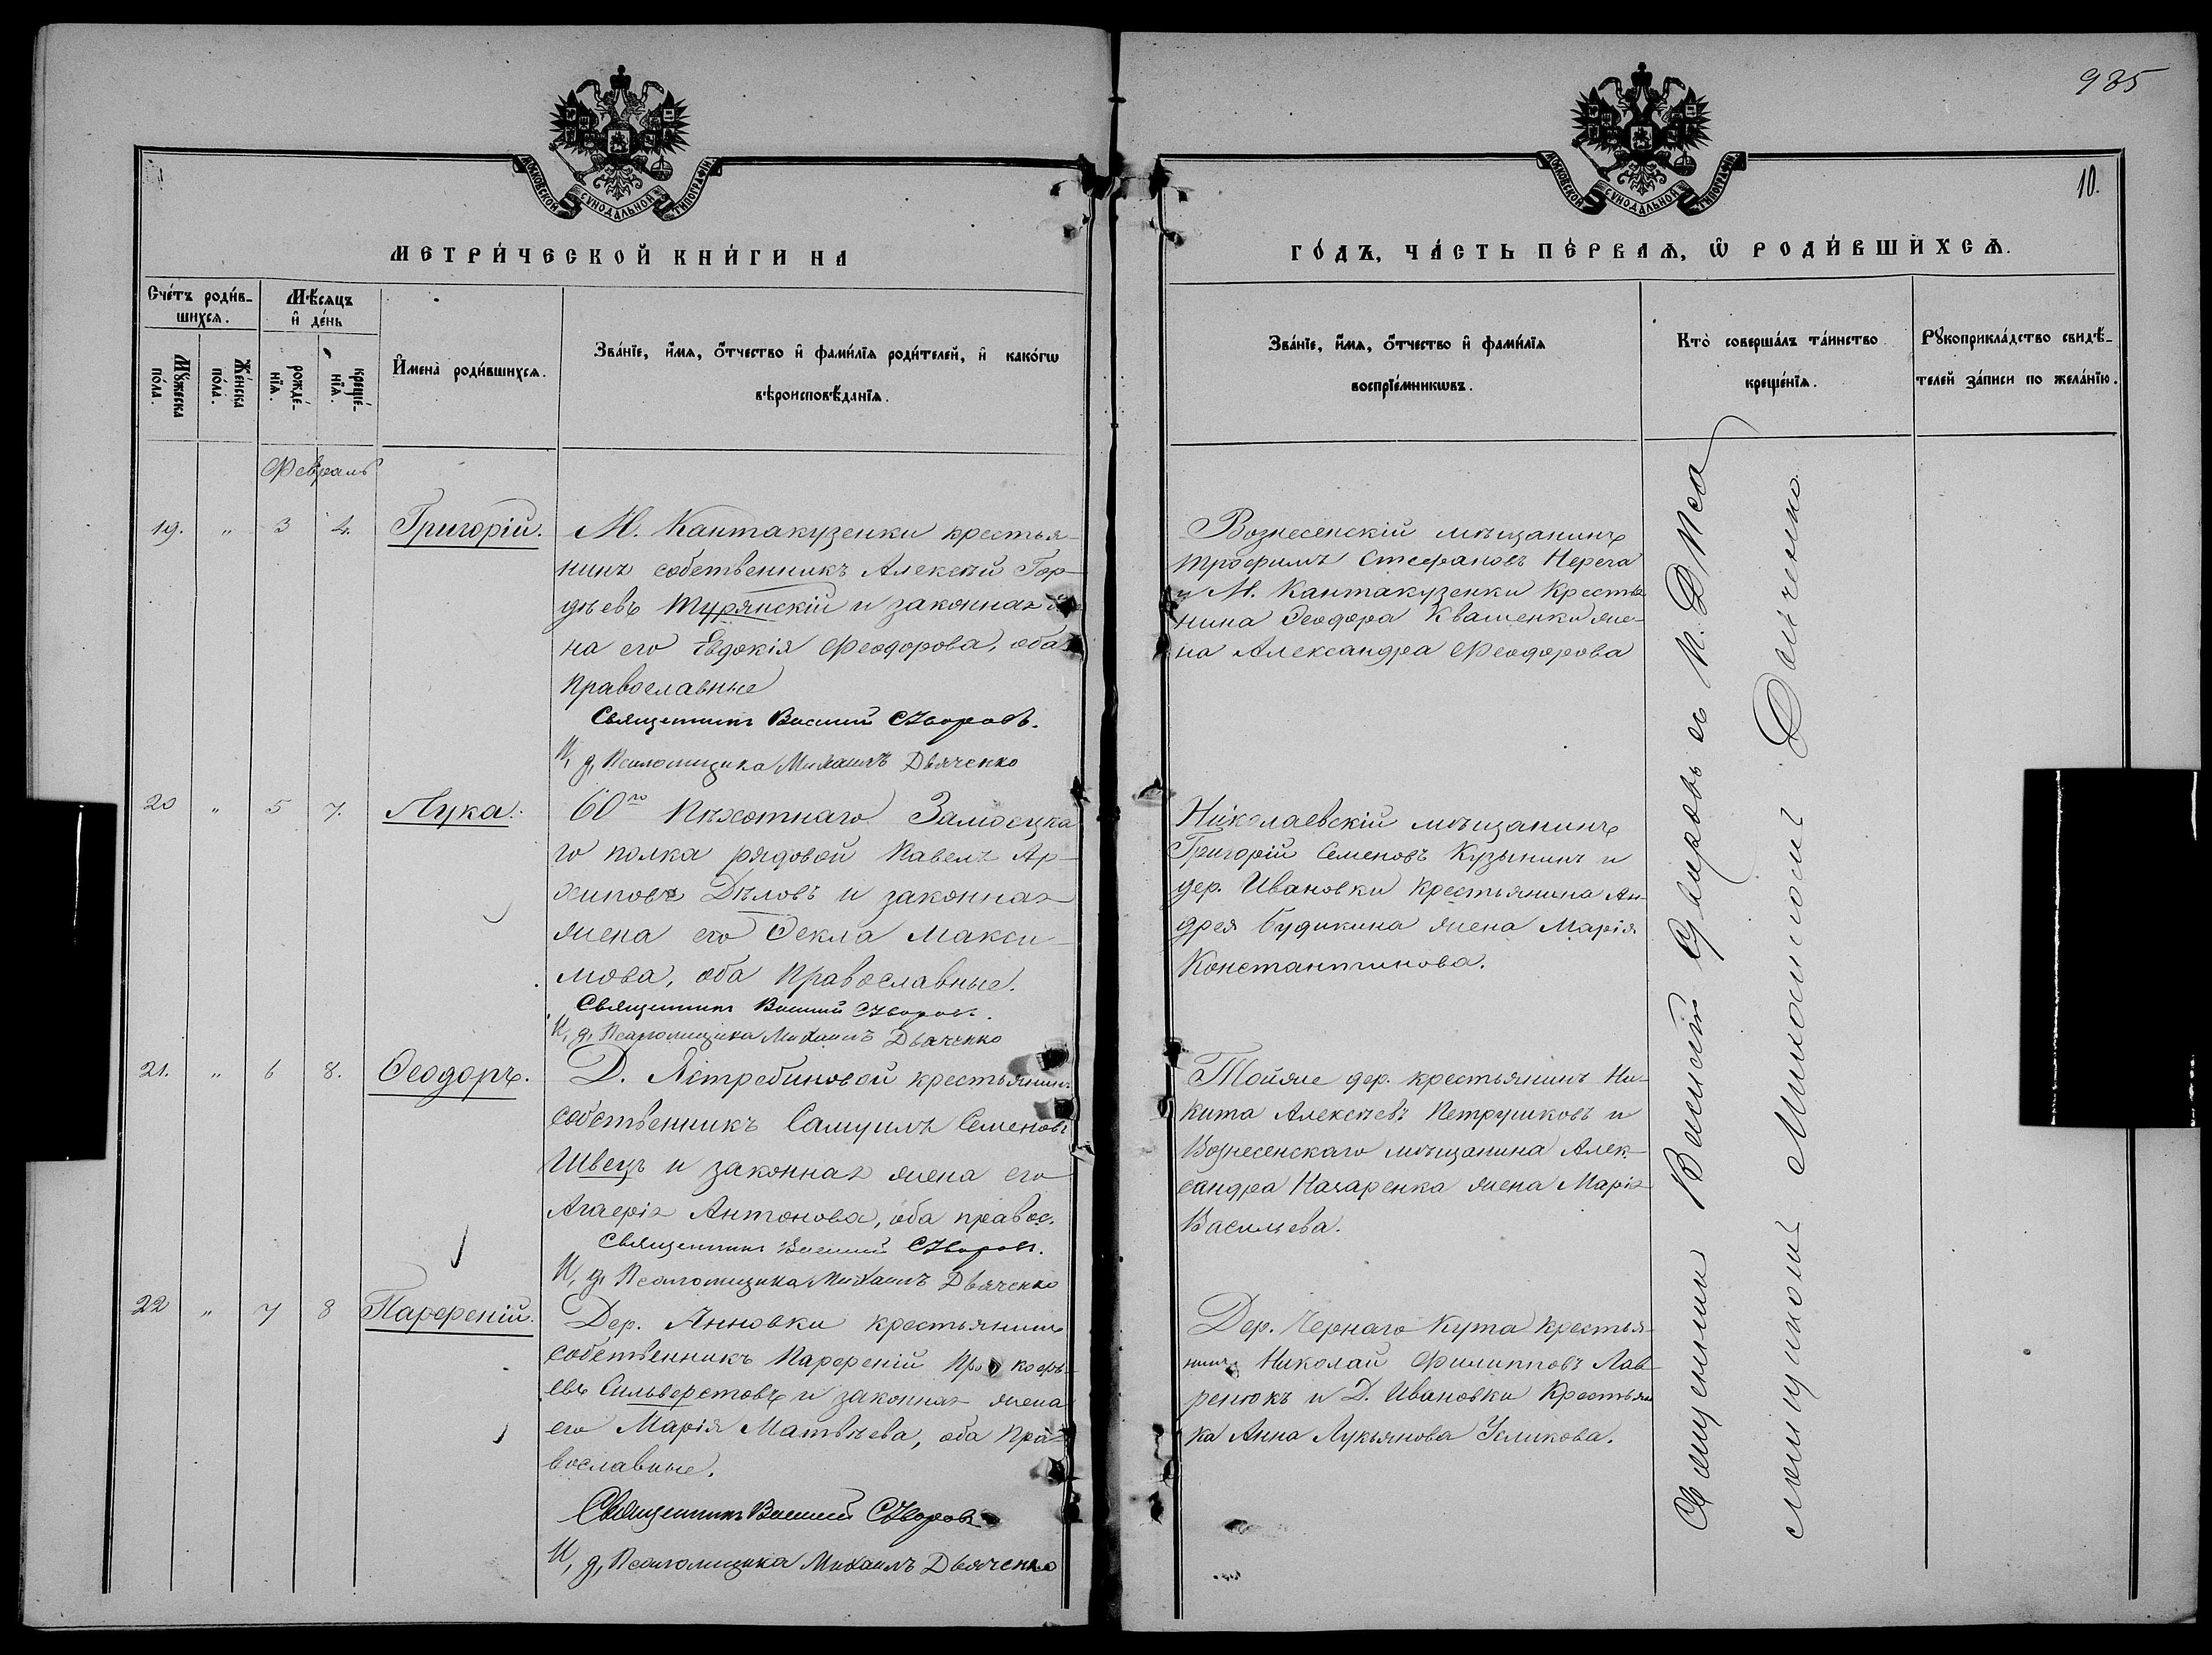 985
10.
МОСКОВСКОЙ СѴНОДАЛЬНОЙ ТИПОГРАФІИ
МОСКОВСКОЙ СѴНОДАЛЬНОЙ ТИПОГРАФІИ
МЕТРИ́ЧЕСКОЙ КНИ́ГИ НА
ГО́ДЪ, ЧА́СТЬ ПЕ́РВАѦ, Ѽ РОДИ́ВШИХСѦ.
Сче́тъ роди́в-
шихсѧ.
Мꙋжеска по́ла.
Же́нска по́ла.
Мѣ́сѧцъ
и҆ де́нь
рожде́-нїѧ.
креще́-нїѧ.
И҆мена̀ роди́вшихсѧ.
Зва́нїе, и҆́мѧ, ѻ҆́тчество и҆ фами́лїѧ роди́телей, и҆ како́гѡ
вѣроисповѣ́данїѧ.
Зва́нїе, и҆́мѧ, ѻ҆́тчество и҆ фами́лїѧ
воспрїе́мникѡвъ.
Кто̀ соверша́лъ та́инство
креще́нїѧ.
Рꙋкоприкла́дство свидѣ́-
телей за́писи по жела́нїю.
Февраль
19. " 3 4. Григорій.
М. Кантакузенки крестья-
нинъ собственникъ Алексѣй Гор-
дѣевъ Турянскій и законная же
на его Евдокія Феодорова, оба
Православные
Священникъ Василій Суворовъ.
И, д, Псаломщика Михаилъ Дьяченко
Вознесенскій мѣщанинъ
Трофимъ Стефановъ Нереча
и М. Кантакузенки Крестья
нина Феодора Квашенки же-
на Александра Феодорова
20 " 5 7. Лука.
60го Пѣхотнаго Замосцка
го полка рядовой Павелъ Ар-
хиповъ Дѣловъ и законная
жена его Ѳекла Макси-
мова, оба Православные.
Священникъ Василій Суворовъ.
И, д, Псаломщика Михаилъ Дьяченко
Николаевскій мѣщанинъ
Григорій Семеновъ Кузьминъ и
дер. Ивановки крестьянина Ан-
дрея Будикина жена Марія
Константинова.
21. " 6 8. Ѳеодоръ.
Д. Ястребиновой крестьянинъ
собственникъ Самуилъ Семеновъ
Швецъ и законная жена его
Агафія Антонова, оба правос.
Священникъ Василій Суворовъ.
И, д, Псаломщика Михаилъ Дьяченко
Тойже дер. крестьянинъ Ни-
кита Алексѣевъ Петрушковъ и
Вознесенскаго мѣщанина Алек-
сандра Назаренка жена Марія
Васильева.
22 " 7 8 Парфеній.
Дер. Анновки крестьянинъ
собственникъ Парфеній Прокофь-
евъ Сильверстовъ и законная жена
его Марія Матвѣева, оба Пра-
вославные.
Священникъ Василій Суворовъ
И, д, Псаломщика Михаилъ Дьяченко
Дер. Чернаго Кута Крестья-
нинъ Николай Филипповъ Лав-
ренюкъ и Д. Ивановки Крестьян
ка Анна Лукьянова Усликова.
Священникъ Василій Суворовъ съ И. Д. Пса
ломщикомъ Михаиломъ Дьяченко.